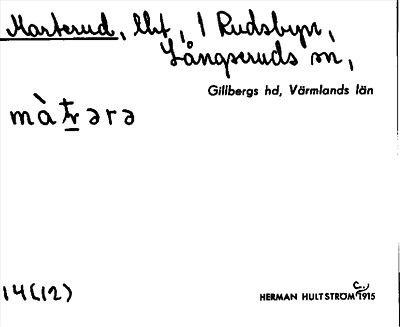 Marterud, lht, 1 Rudsbyn,
Långseruds sn,
Gillbergs hd, Värmlands län
màt̲r̲ərə
14(12)
HERMAN HULTSTRÖM C. 1915